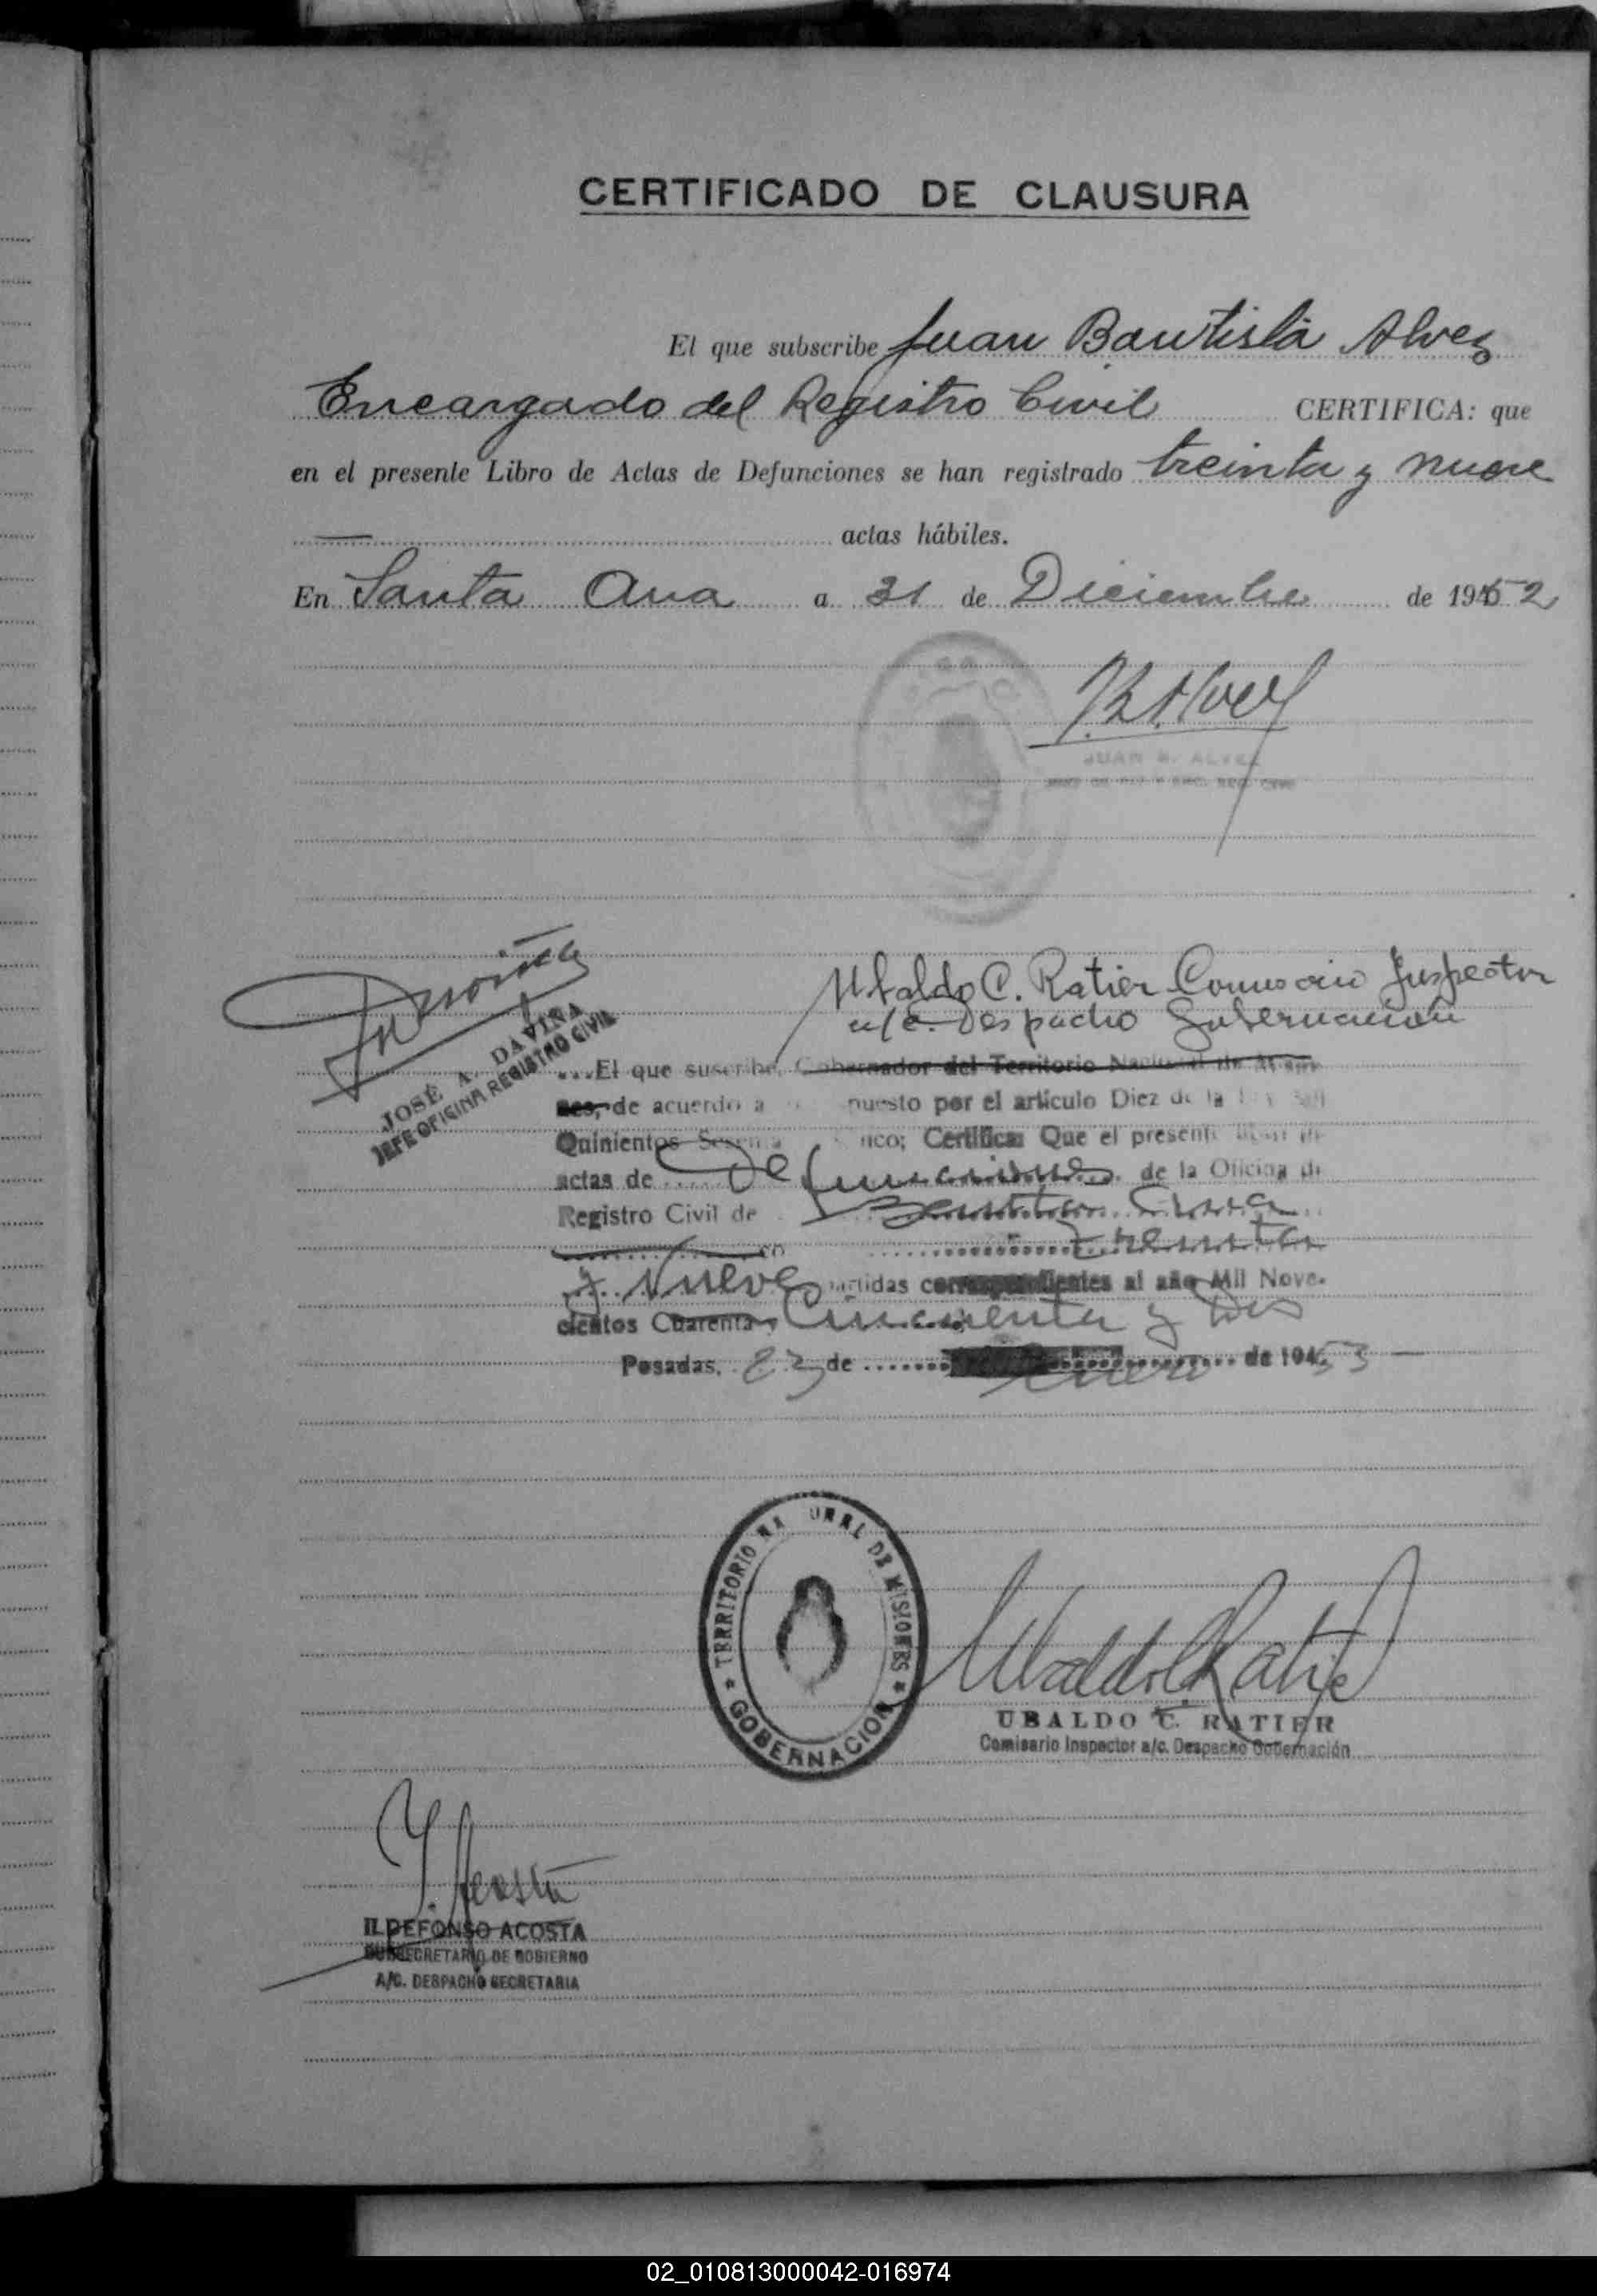 CERTIFICADO DE CLAUSURA
El que subscribe Juan Bautista Alvez
Encargado del Registro Civil CERTIFICA: que
en el presente Libro de Actas de Defunciones se han registrado treinta y nueve
actas hábiles.
En Santa Ana a 31 de Diciembre de 1952
JUAN B. ALVEZ
Ubaldo C. Ratier Comisario Inspector
a/c. Despacho Gobernación
JOSÉ A. DAVIÑA
JEFE OFICINA REGISTRO CIVIL
El que suscribe, Gobernador del Territorio Nacional de Misio
nes, de acuerdo a puesto por el artículo Diez de la
Quinientos nco; Certifica: Que el presente
actas de Defunciones de la Oficina de
Registro Civil de Santa Ana
Treinta
y Nueve partidas correspondientes al año Mil Nove-
cientos Cuarenta y Cincuenta y Dos
Posadas, 23 de Enero de 1953
TERRITORIO NACIONAL DE MISIONES
GOBERNACION
Ubaldo C. Ratier
UBALDO C. RATIER
Comisario Inspector a/c. Despacho Gobernación
I. Acosta
ILDEFONSO ACOSTA
SUBSECRETARIO DE GOBIERNO
A/C. DESPACHO SECRETARIA
02_010813000042-016974